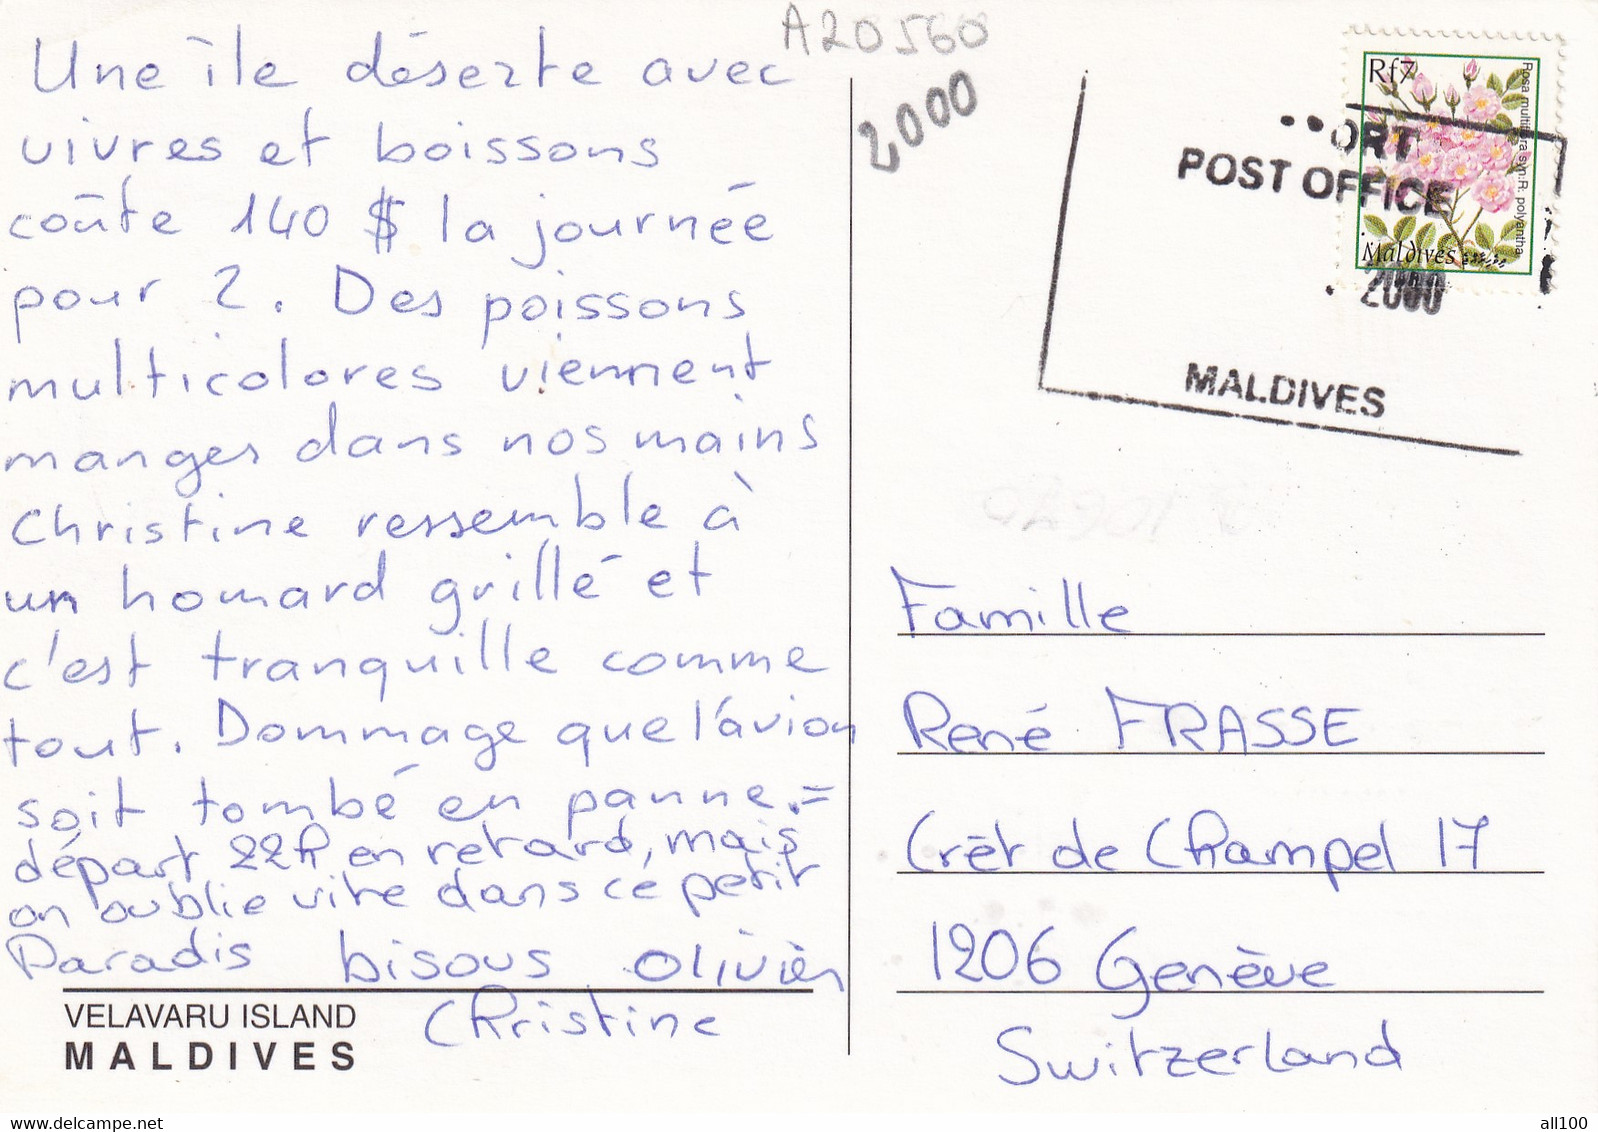 A20560
2000
Une île déserte avec
vivres et boissons
coûte 140 $ la journée
pour 2. Des poissons
multicolores viennent
manger dans nos mains
Christine ressemble à
un homard grillé et
c'est tranquille comme
tout. Dommage que l'avion
soit tombé en panne. =
départ 22h en retard, mais
on oublie vite dans ce petit
Paradis bisous Olivier
Christine
VELAVARU ISLAND
MALDIVES
Rf7
Rosa multiflora syn.R. polyantha
Maldives
ORT
POST OFFICE
2000
MALDIVES
Famille
René FRASSE
Crêt de Champel 17
1206 Genève
Switzerland
all100